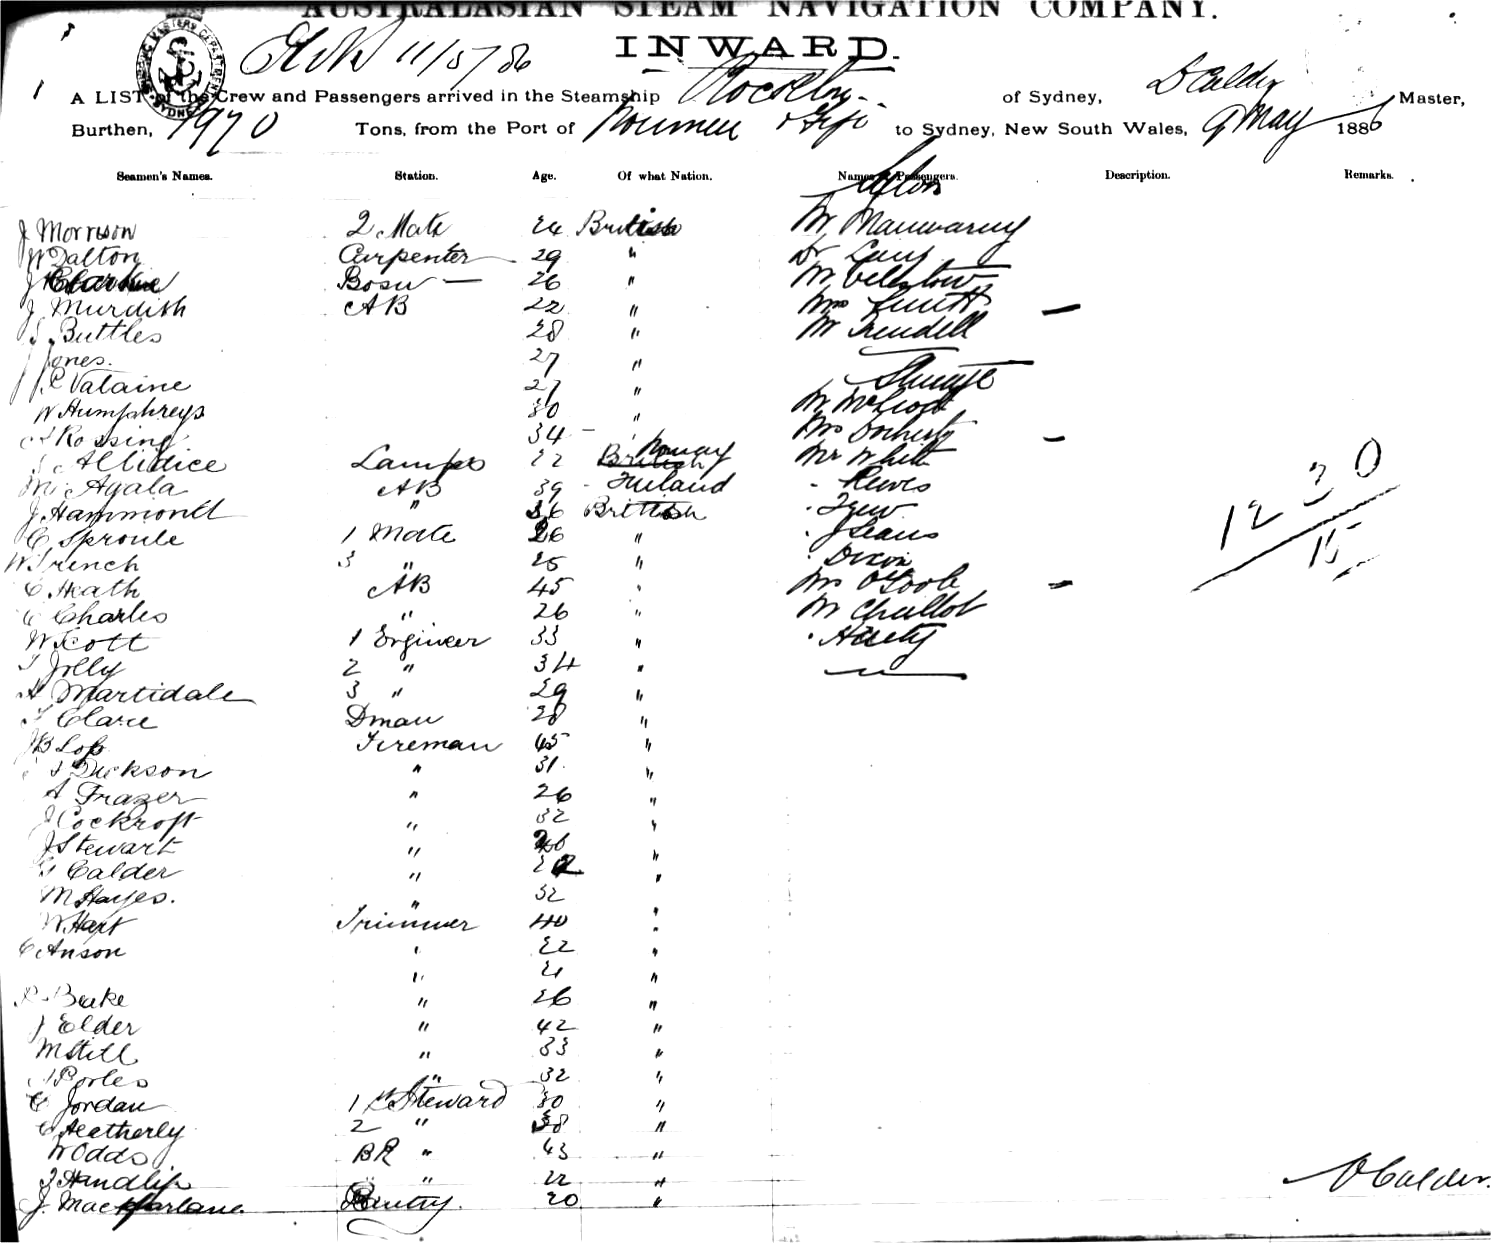 AUSTRALASIAN STEAM NAVIGATION COMPANY.
INWARD.
11/5/86
A LIST of the Crew and Passengers arrived in the Steamship Rockton of Sydney, D Calder Master,
Burthen, 1970 Tons, from the Port of Noumea & Fiji to Sydney, New South Wales, 9 May 1886
Seamen's Names. Station. Age. Of what Nation. Names of Passengers. Description. Remarks.
Saloon
J Morrison 2 Mate 24 British Mr Manwaring
W Dalton Carpenter 29 " Dr
J Clarkue Bosn — 26 " Mr
J Murdish AB 22 " Mrs Smith —
S Buttles 28 " Mr Trendell
J Jones. 27 "
J P Valaine 27 " Steerage
W Humphreys 30 " Mr McLeod
A Rossing 34 - Norway Mrs Doherty —
Allidice Lamps 22 British Mr White
M Ayala AB 39 - Finland - Reeves
J. Hammontt " 36 British
C Sproule 1 Mate 26 "
W French 3 " 25 " Dixon
C Heath AB 45 " Mrs O'Toole —
C Charles " 26 " Mr
W Scott 1 Engineer 33 "
T Jolly 2 " 34 "
A Martidale 3 " 29 "
T Clare Dman 28 "
J B Lop Fireman 45 "
J Dickson " 31. "
A Frazer " 26 "
J Cockroft " 32 "
J Stewart " 46 "
G Calder " 22 "
M Hayes. " 32 "
W Hart Trimmer 40 "
C Anson " 22 "
" 21 "
R Beake " 26 "
J Elder " 42 "
M Still " 33 "
A Porles " 32 "
C Jordan 1 Steward 30 "
C Heatherly 2 " 38 "
W Odds BR " 43 "
J Handlip " 22 "
J. Macfarlane Pantry. 20 "
12 30
15
D Calder.